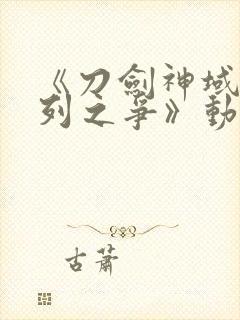 《刀劍神域
列之爭》動
古蕭